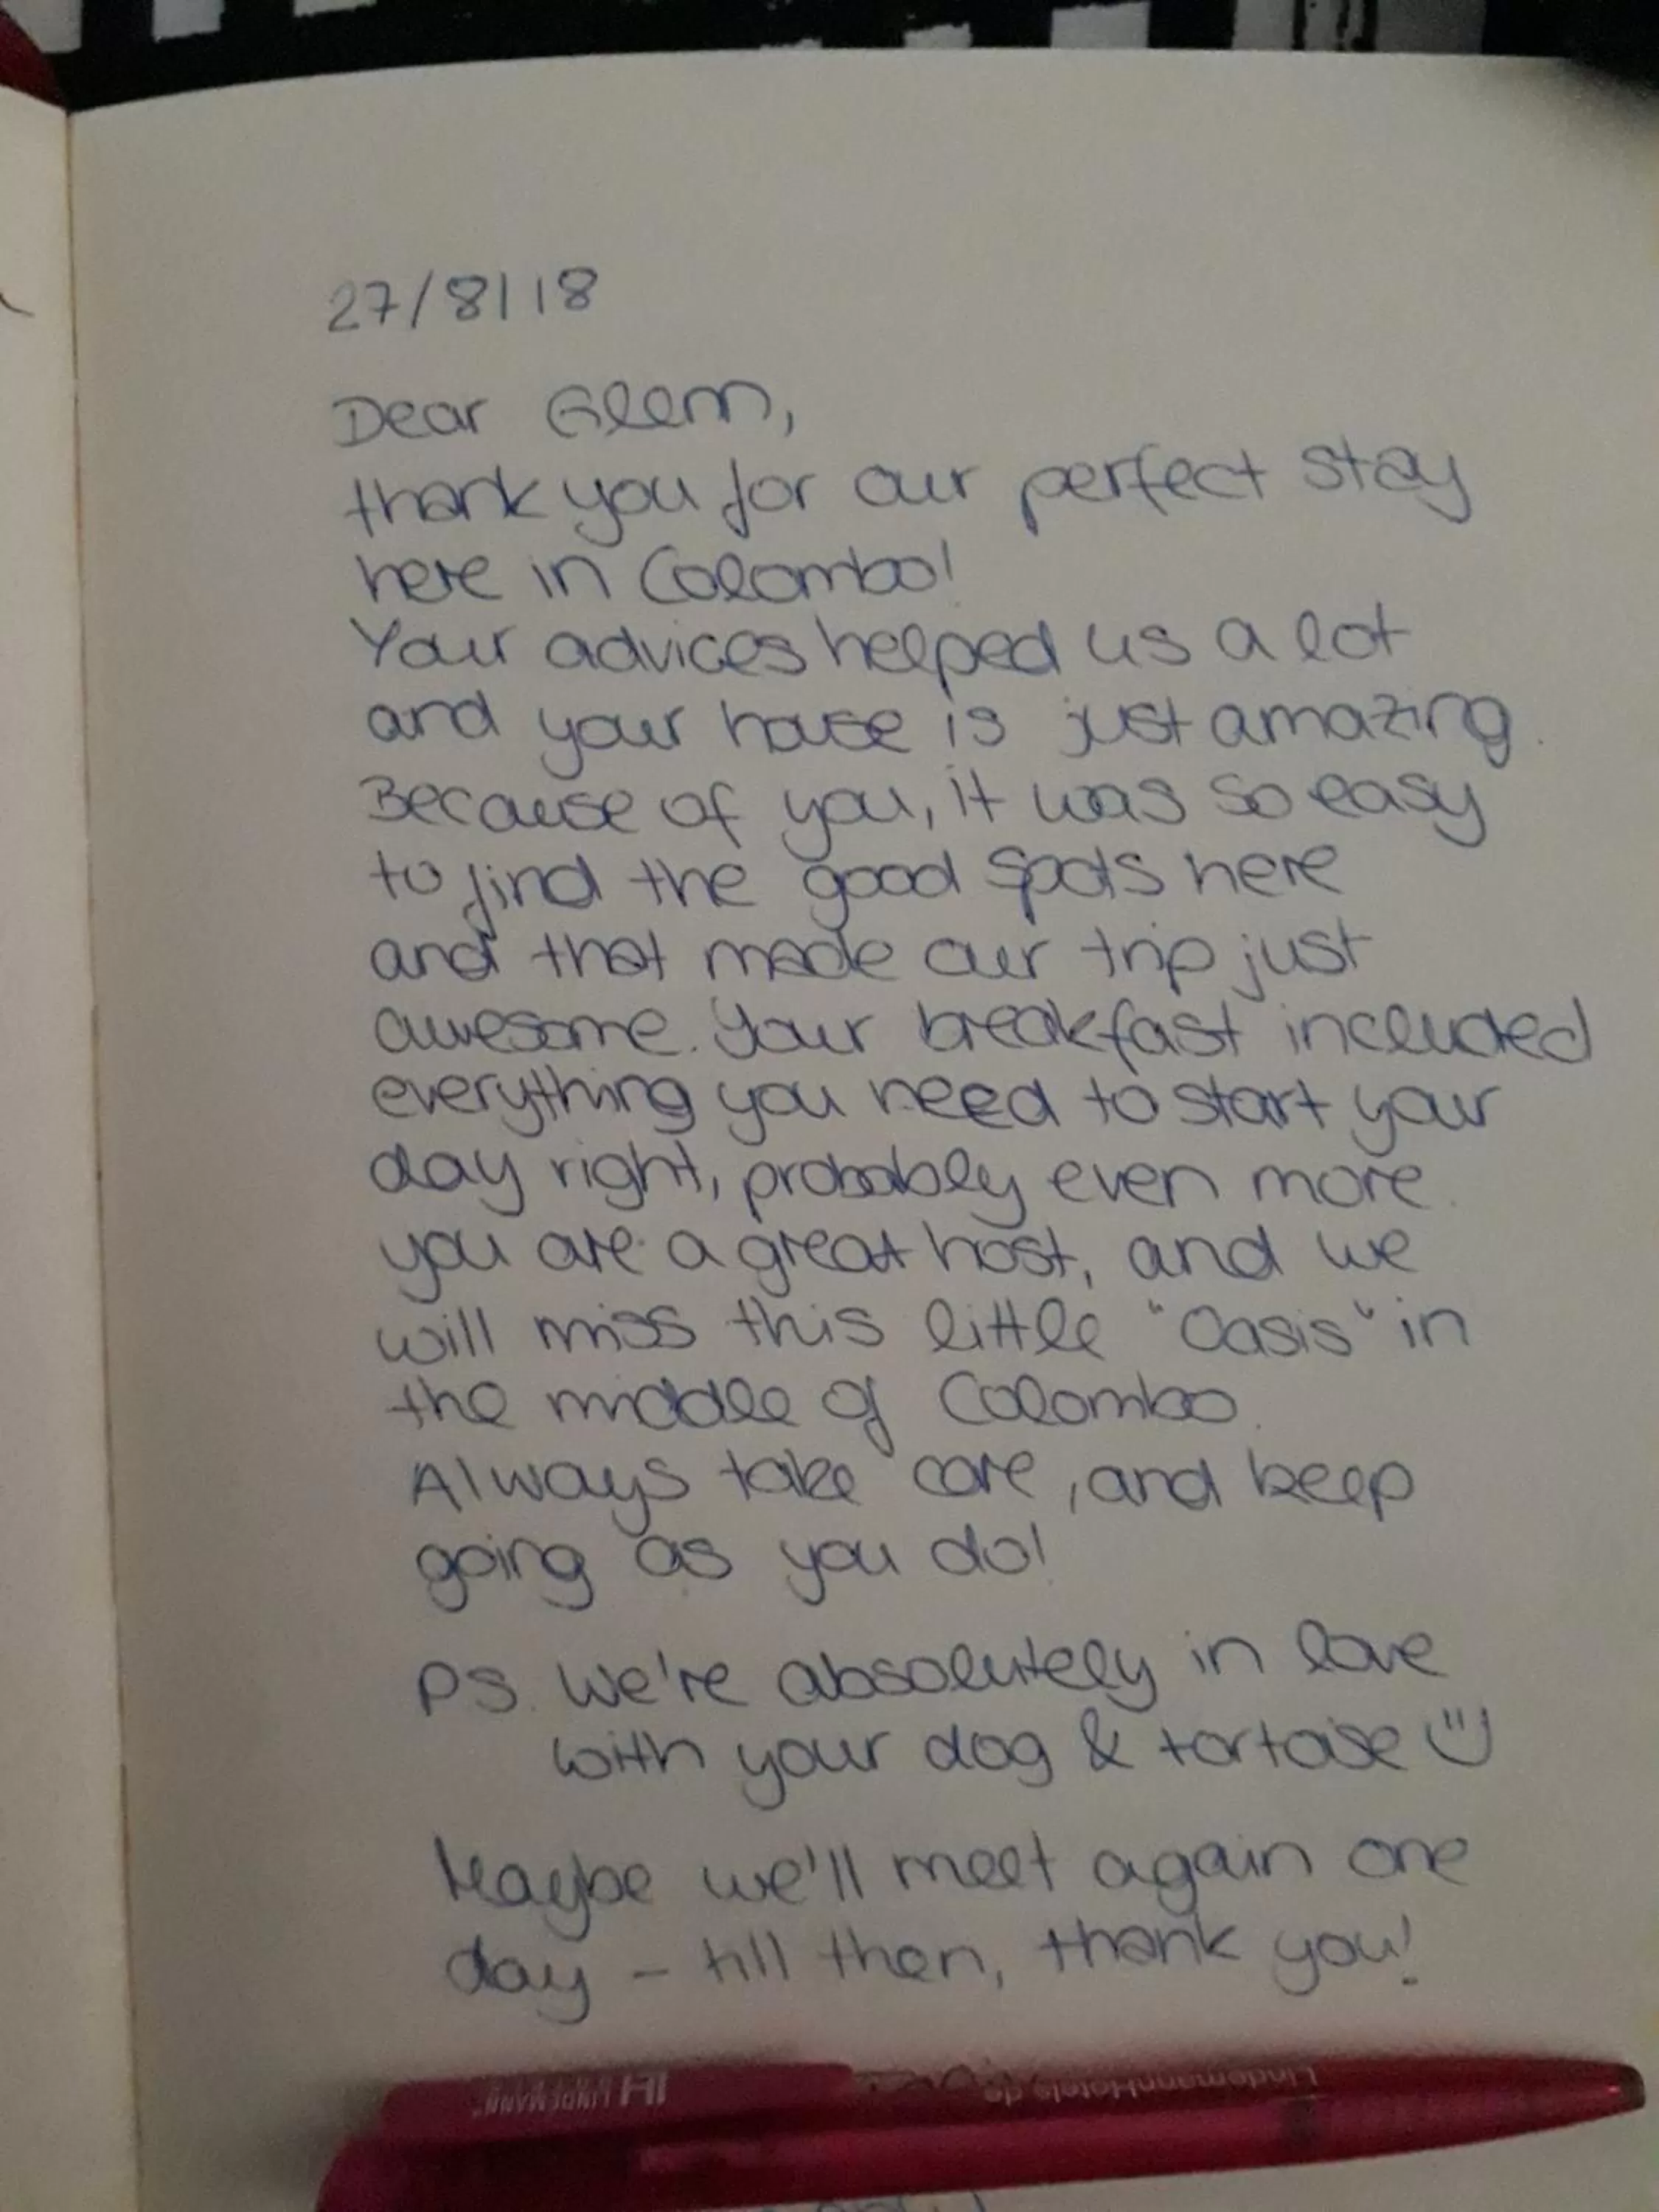 27/8/18
Dear Glenn,
thank you for our perfect stay
here in Colombo!
Your advices helped us a lot
and your house is just amazing.
Because of you, it was so easy
to find the good spots here
and that made our trip just
awesome. Your breakfast included
everything you need to start your
day right, probably even more.
you are a great host, and we
will miss this little "Oasis" in
the middle of Colombo.
Always take care, and keep
going as you do!
PS. We're absolutely in love
with your dog & tortoise
Maybe we'll meet again one
day - till then, thank you!
LindemannHotels.de
LH LINDEMANN